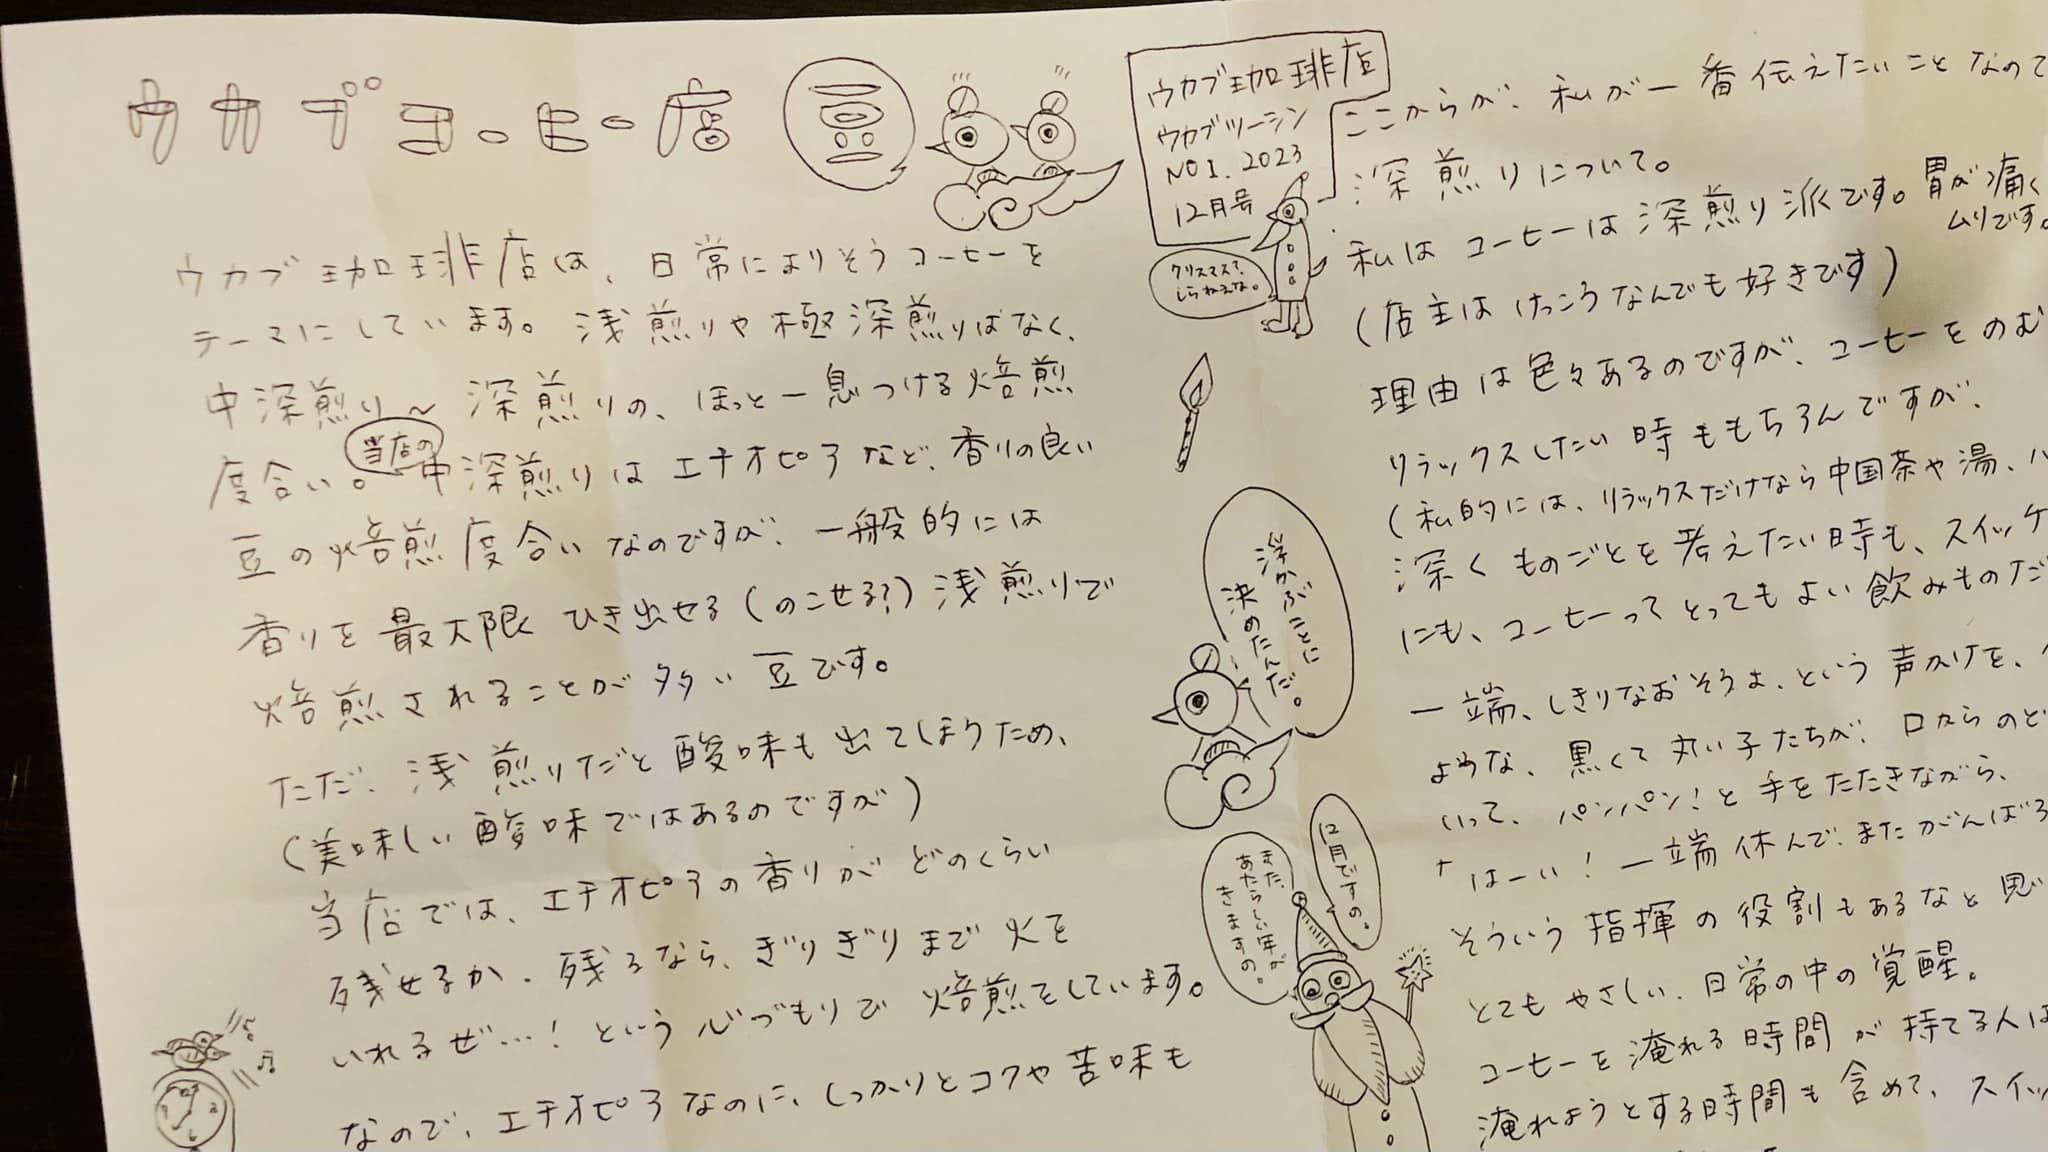 ウカブコーヒー店
豆
ウカブ珈琲店は、日常によりそうコーヒーを
テーマにしています。浅煎りや極深煎りはなく、
中深煎り〜深煎りの、ほっと一息つける焙煎
度合い。当店の中深煎りはエチオピアなど、香りの良い
豆の焙煎度合いなのですが、一般的には
香りを最大限ひき出せる(のこせる?)浅煎りで
焙煎されることが多い豆です。
ただ、浅煎りだと酸味も出てしまうため、
(美味しい酸味ではあるのですが)
当店では、エチオピアの香りがどのくらい
残せるか、残るなら、ぎりぎりまで火を
いれるぜ…!という心づもりで焙煎をしています。
なので、エチオピアなのに、しっかりとコクや苦味も
ウカブ珈琲店
ウカブツーシン
NO1.2023
12月号
クリスマス?
しらねえな。
浮かぶことに
決めたんだ。
12月ですの。
また、
あたらしい年が
きますの。
ここからが、私が一番伝えたいことなので
深煎りについて。
私はコーヒーは深煎り派です。胃が痛く
ムリです。
(店主はけっこうなんでも好きです)
理由は色々あるのですが、コーヒーをのむ
リラックスしたい時ももちろんですが、
(私的には、リラックスだけなら中国茶や湯、ハ
深くものごとを考えたい時も、スイッチ
にも、コーヒーってとってもよい飲みものだ
一端、しきりなおそうよ、という声かけを、
ような、黒くて丸い子たちが、口からのど
いって、パンパン!と手をたたきながら、
「はーい!一端休んで、またがんばろ
そういう指揮の役割もあるなと思い
とてもやさしい、日常の中の覚醒。
コーヒーを淹れる時間が持てる人は
淹れようとする時間も含めて、スイッ